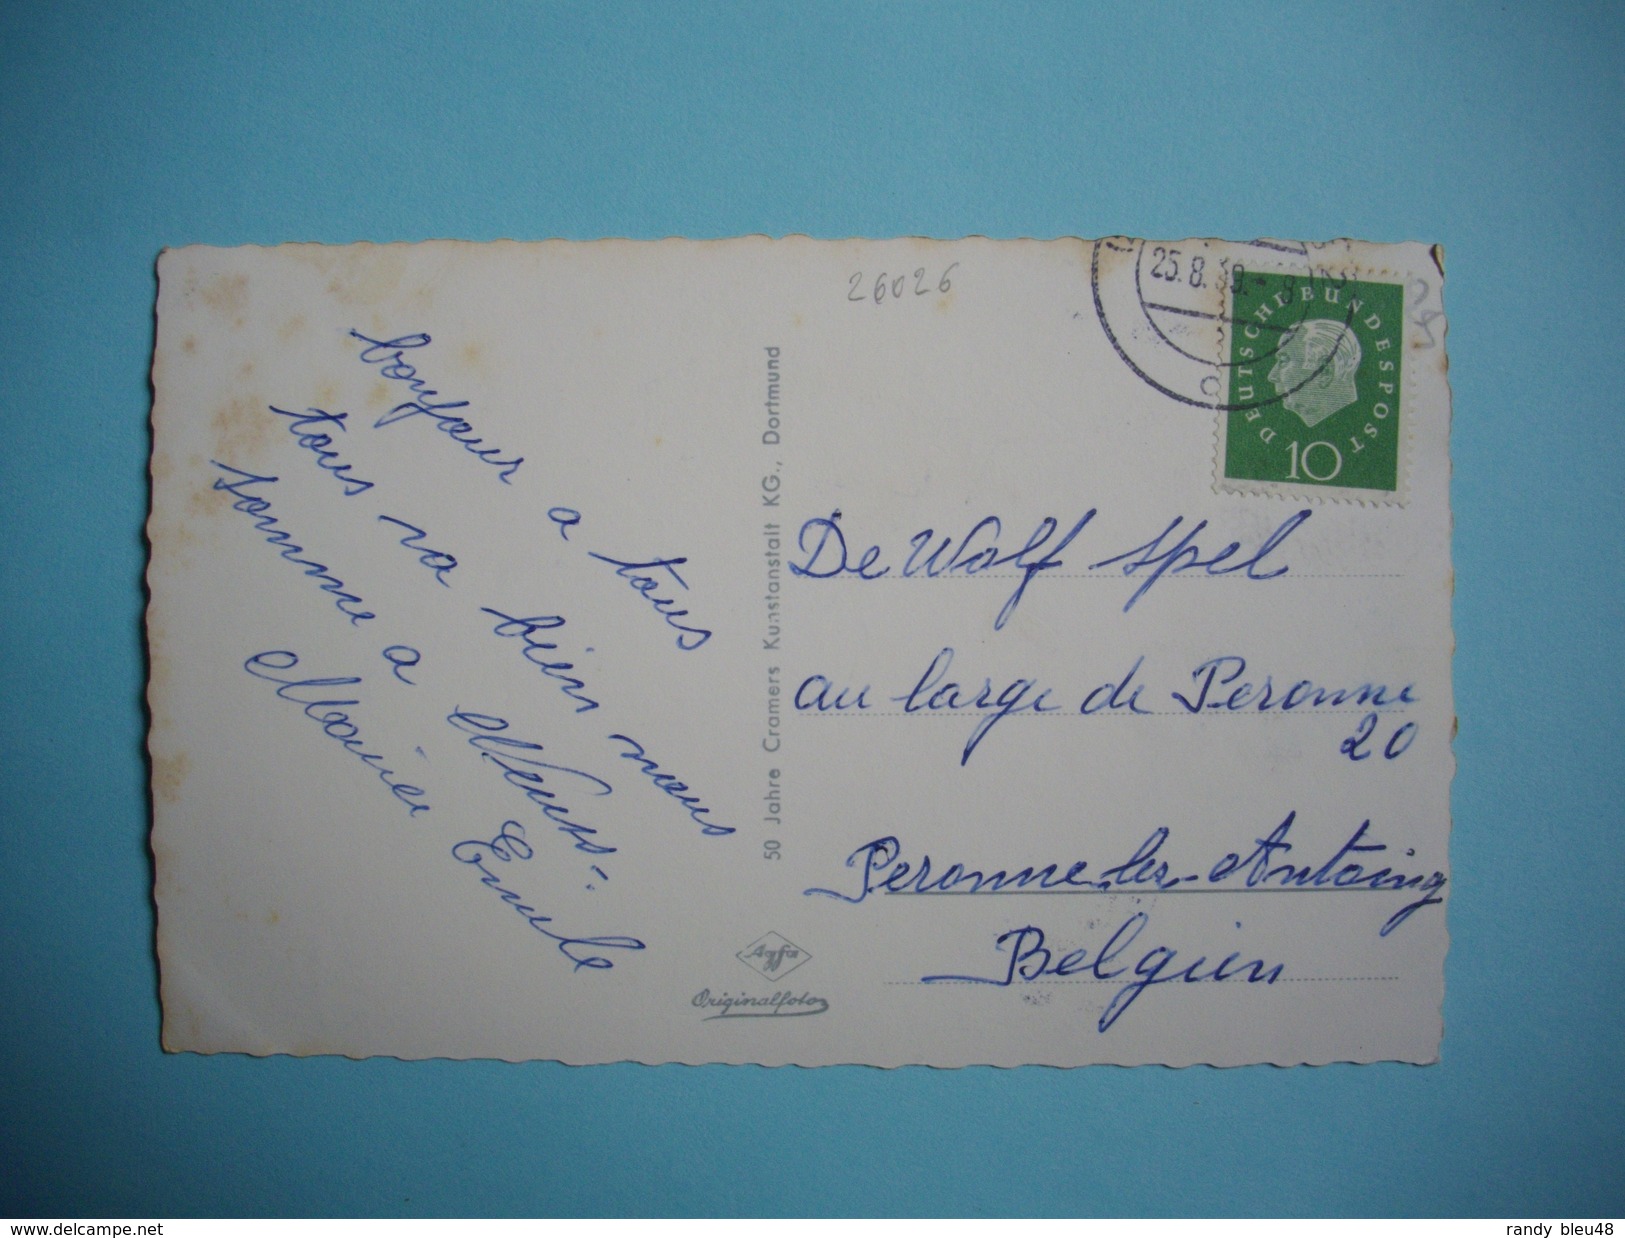 bonjour a tous
tous va bien nous
somme a Neuss.
Emile
26026
50 Jahre Cramers Kunstanstalt KG., Dortmund
Agfa
Originalfoto
25.8.59.- 8
DEUTSCHE BUNDESPOST
10
De Wolf Spel
au large de Peronne
20
Peronne-les-Antoing
Belgien
www.delcampe.net
randy_bleu48